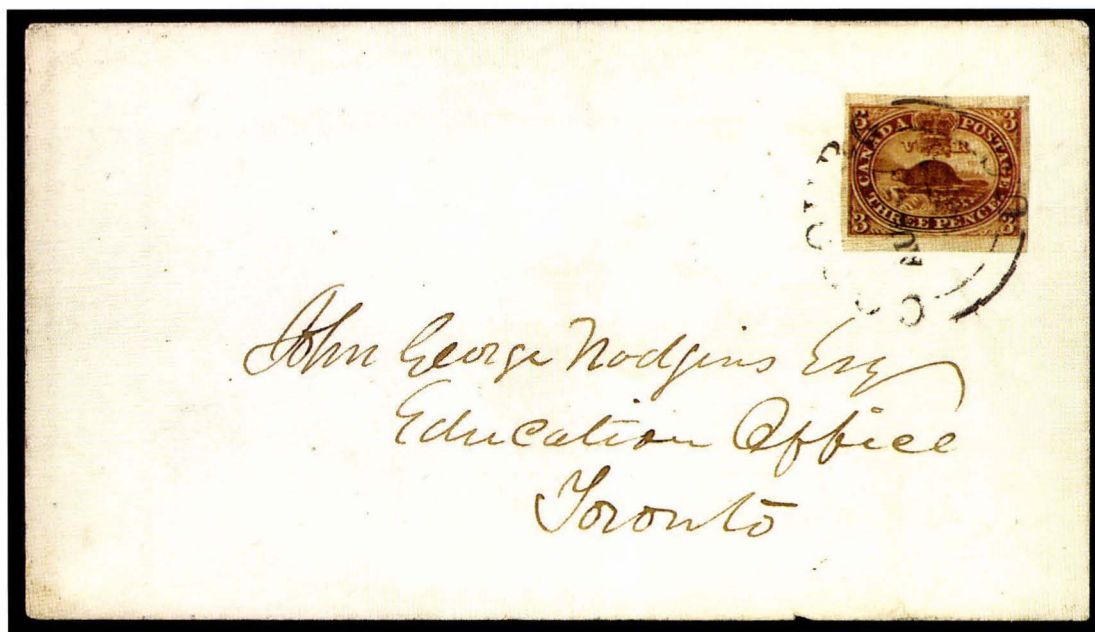 3 CANADA POSTAGE 3
V R
3 THREE PENCE 3
John George Hodgins Esq
Education Office
Toronto